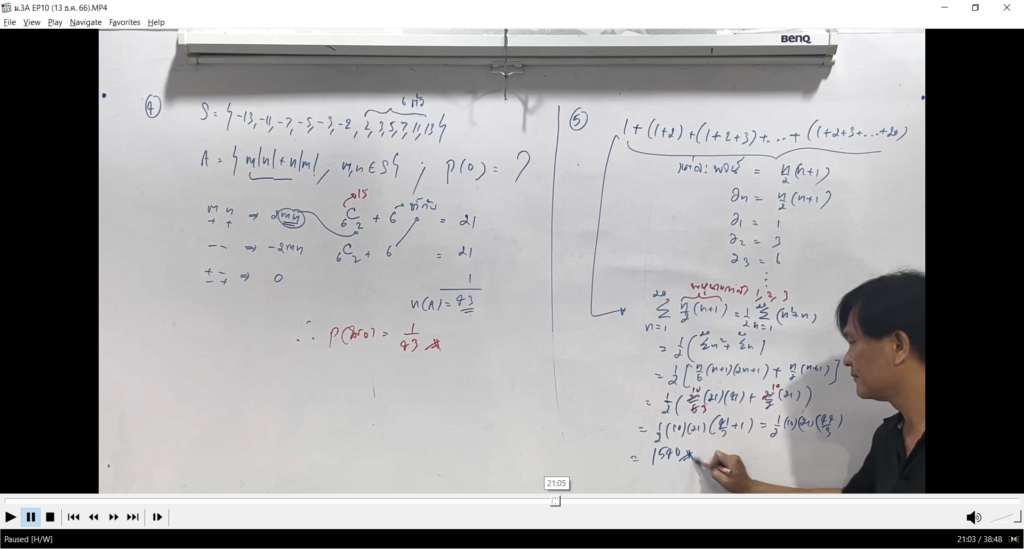 ม.3A EP10 (13 ธ.ค. 66).MP4
File View Play Navigate Favorites Help
BENQ
④
6 ตัว
S = { -13, -11, -7, -5, -3, -2, 2, 3, 5, 7, 11, 13 }
A = { m|n| + n|m| , m,n ∈ S } ; P(0) = ?
15
m n
+ + ⇒ 2mn 6C2 + 6 = 21
ซ้ำกัน
- - ⇒ -2mn 6C2 + 6 = 21
+ -
- + ⇒ 0 1
n(A) = 43
∴ P(ได้ 0) = 1/43
⑤
1 + (1+2) + (1+2+3) + ... + (1+2+3+...+20)
= n/2 (n+1)
an = n/2 (n+1)
a1 = 1
a2 = 3
a3 = 6
⋮
1, 2, 3
20 Σ n=1 n/2 (n+1) = 1/2 20 Σ n=1 (n²+n)
= 1/2 ( 20 Σ n² + 20 Σ n )
= 1/2 [ n/6 (n+1)(2n+1) + n/2 (n+1) ]
= 1/2 ( 20/6 (21)(41) + 20/2 (21) )
10 3 10
= 1/2 (10)(21) ( 41/3 + 1 ) = 1/2 (10)(21)(44/3)
= 1540
21:05
Paused [H/W]
21:03 / 38:48